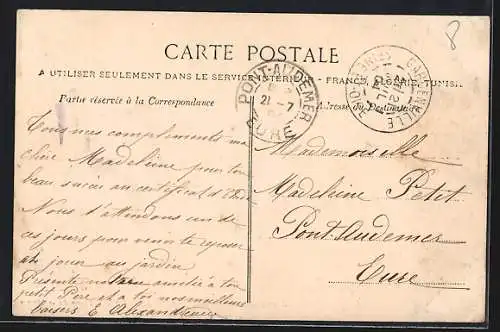 8
CARTE POSTALE
A UTILISER SEULEMENT DANS LE SERVICE INTÉRIEUR - FRANCE, ALGÉRIE, TUNISIE
Partie réservée à la Correspondance
Adresse du Destinataire
PONT-AUDEMER
21 -7
EURE
SEINE
Tous mes compliments ma
chère Madeleine pour ton
beau succès au certificat d'
Nous t'attendons un de
ces jours pour venir te reposer
et jouer au jardin
Présente notre amitié à ton
petit Père et à toi nos meilleurs
baisers E Alexandrine
Mademoiselle
Madeleine Petit
Pont-Audemer
Eure